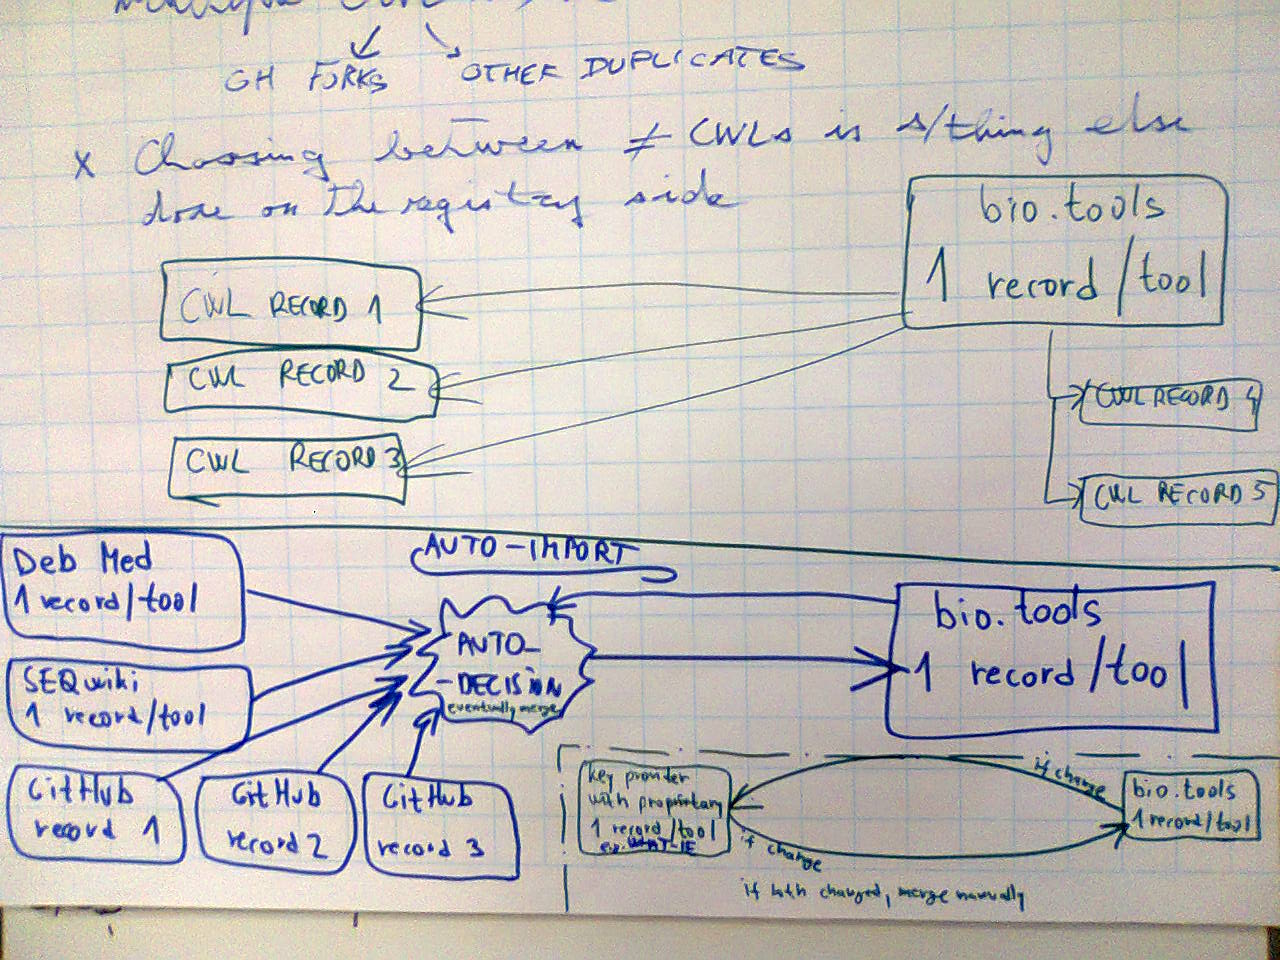 GH FORKS
OTHER DUPLICATES
x Choosing between ≠ CWLs is s/thing else
done on the registry side
bio.tools
1 record/tool
CWL RECORD 1
CWL RECORD 2
CWL RECORD 3
CWL RECORD 4
CWL RECORD 5
AUTO-IMPORT
Deb Med
1 record/tool
SEQwiki
1 record/tool
GitHub
record 1
GitHub
record 2
GitHub
record 3
AUTO-
-DECISION
eventually merge
bio.tools
1 record/tool
key provider
with proprietary
1 record/tool
ex.
if change
if change
bio.tools
1 record/tool
if both changed, merge manually